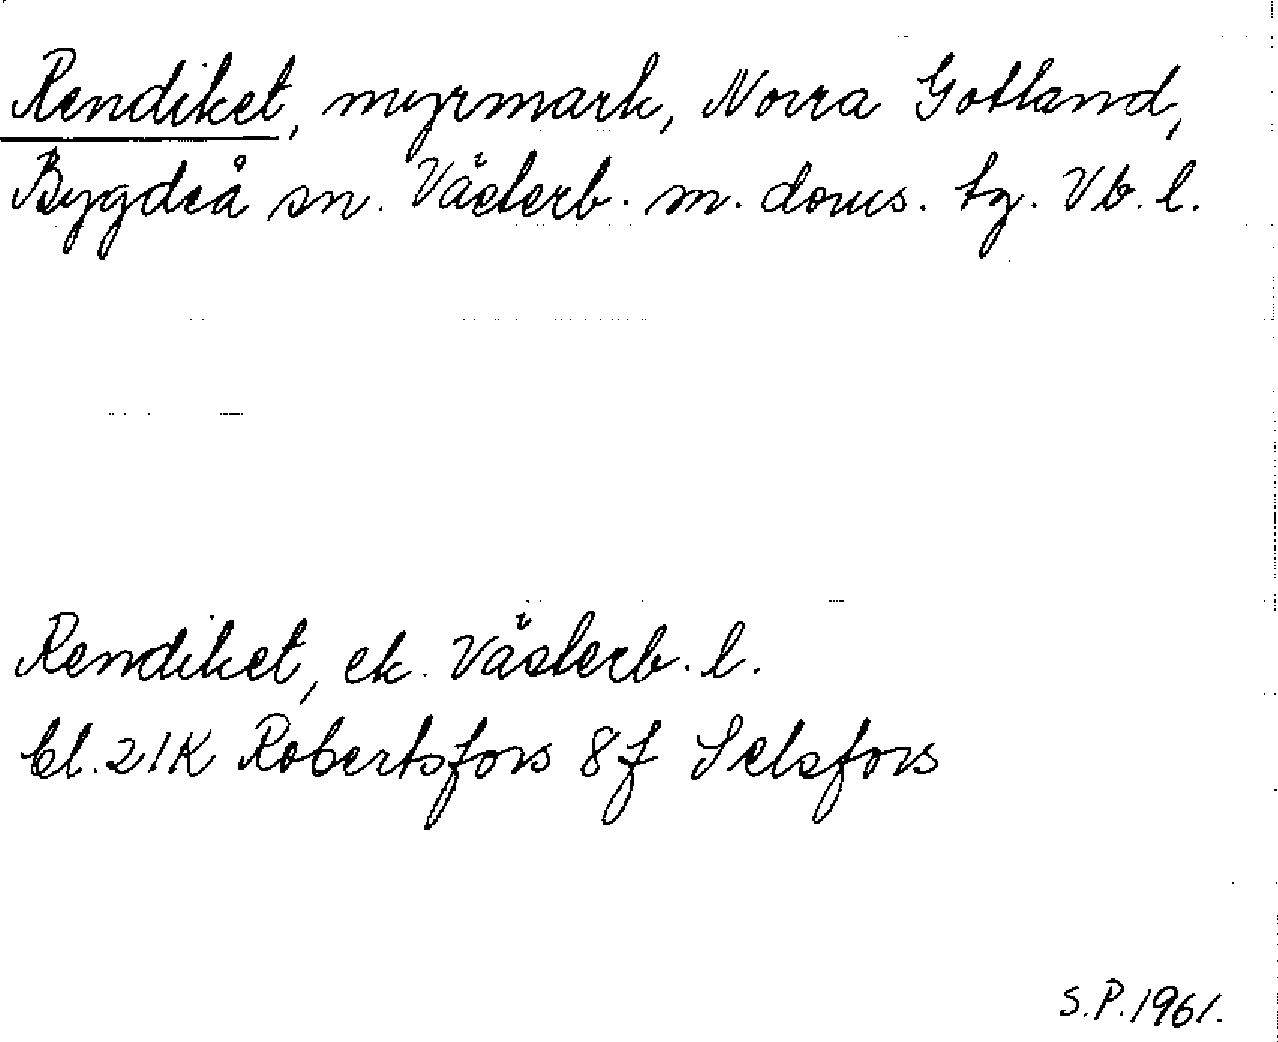 Rendiket, myrmark, Norra Gotland,
Bygdeå sn. Västerb. m. doms. tg. Vb. l.
Rendiket, ek. Västerb. l.
bl. 21K Robertsfors 8f Selsfors
S.P. 1961.